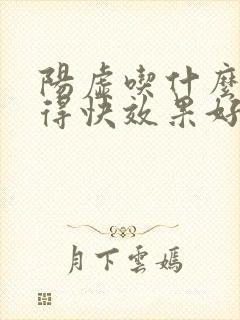 陽虛喫什麽
得快效果好
月下雲嫣